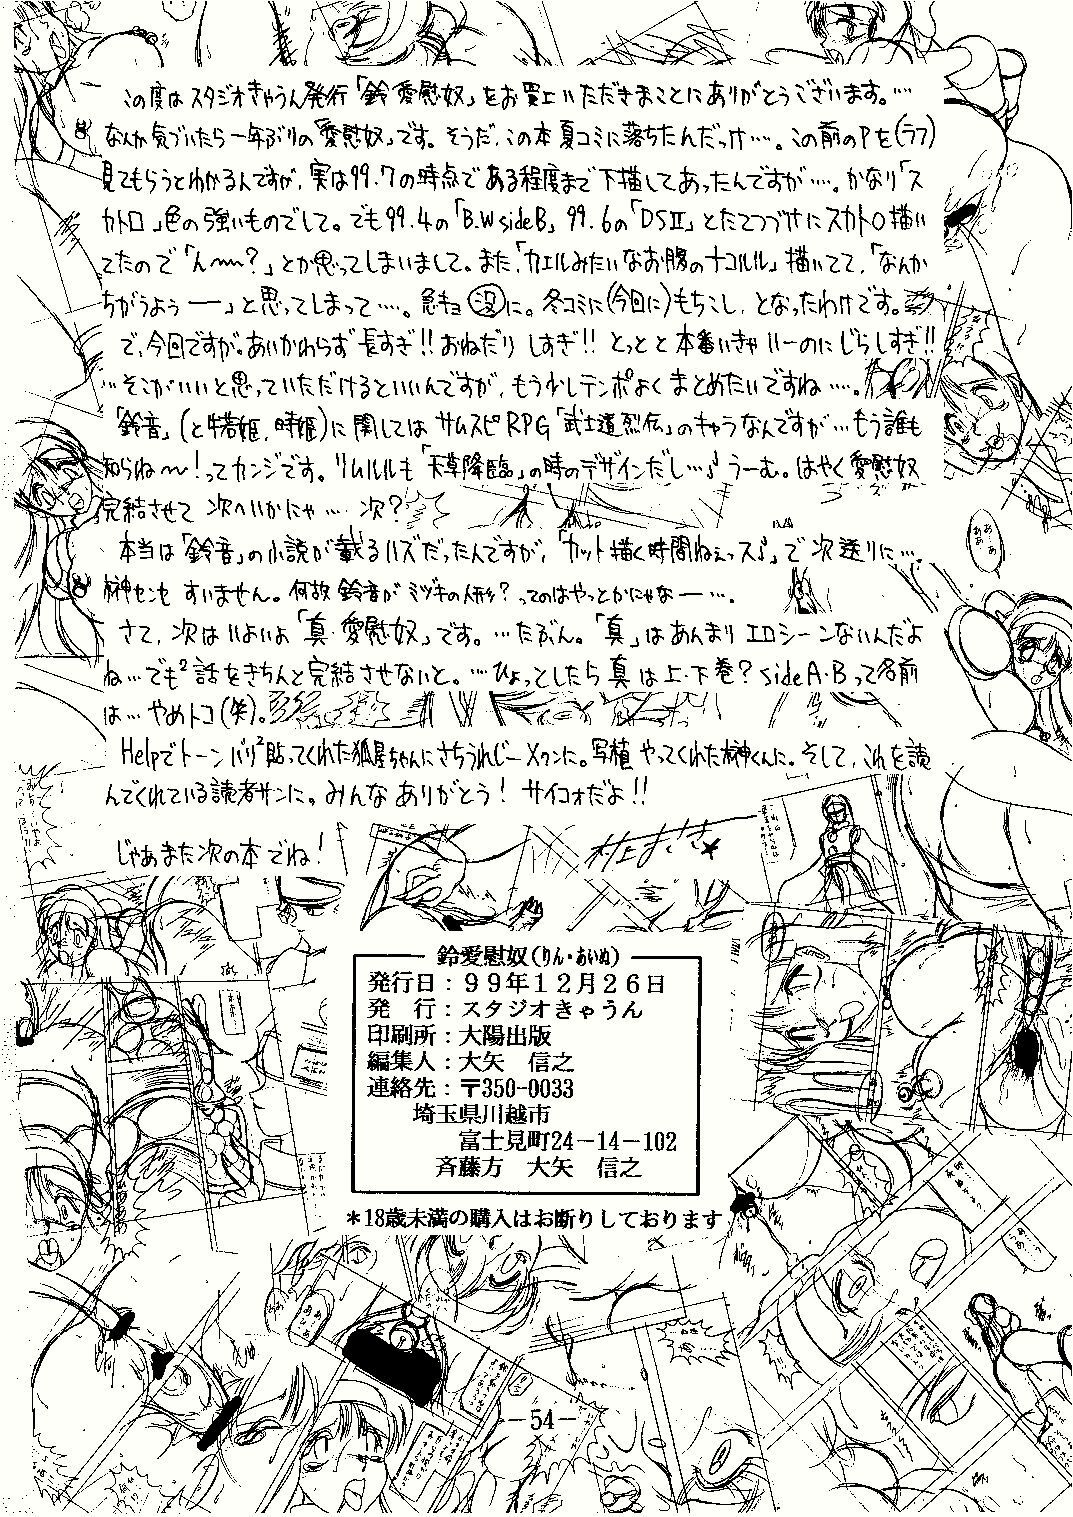 この度はスタジオきゃうん発行「鈴愛慰奴」をお買上いただきまことにありがとうございます。…
なんか気づいたら一年ぶりの「愛慰奴」です。そうだ、この本夏コミに落ちたんだっけ…。この前のPを(ラフ)
見てもらうとわかるんですが、実は99.7の時点である程度まで下描してあったんですが…。かなり「ス
カトロ」色の強いものでして。でも99.4の「B.W sideB」99.6の「DSⅡ」とたてつづけにスカトロ描い
てたので「ん〜〜?」とか思ってしまいまして。また、「カエルみたいなお腹のナコルル」描いてて、「なんか
ちがうよぅー」と思ってしまって…。急キョ(没)に。冬コミに(今回に)もちこし、となったわけです。
で、今回ですが。あいかわらず長すぎ!!おねだりしすぎ!!とっとと本番いきゃいーのにじらしすぎ!!
…そこがいいと思っていただけるといいんですが、もう少しテンポよくまとめたいですね…。
「鈴音」(と 姫、時姫)に関してはサムスピRPG「武士道烈伝」のキャラなんですが…もう誰も
知らね〜!ってカンジです。リムルルも「天草降臨」の時のデザインだし…♪うーむ。はやく愛慰奴
完結させて次へいかにゃ…次?
本当は「鈴音」の小説が載るハズだったんですが、「カット描く時間ねぇっス♪」で次送りに…。
榊センセすいません。何故鈴音がミヅキの人形?ってのはやっとかにゃなー…。
さて、次はいよいよ「真・愛慰奴」です。…たぶん。「真」はあんまりエロシーンないんだよ
ね…でも2話をきちんと完結させないと。…ひょっとしたら真は上・下巻?sideA・Bって名前
は…やめトコ(笑)。
Helpでトーンバリ2貼ってくれた狐星ちゃんにさちうれじーXゥンに。写植やってくれた榊くんに。そして、これを読
んでくれている読者サンに。みんなありがとう!サイコォだよ!!
じゃあまた次の本でね!
鈴愛慰奴(りん・あいぬ)
発行日:99年12月26日
発　行:スタジオきゃうん
印刷所:大陽出版
編集人:大矢　信之
連絡先:〒350-0033
埼玉県川越市
富士見町24-14-102
斉藤方　大矢　信之
*18歳未満の購入はお断りしております
-54-